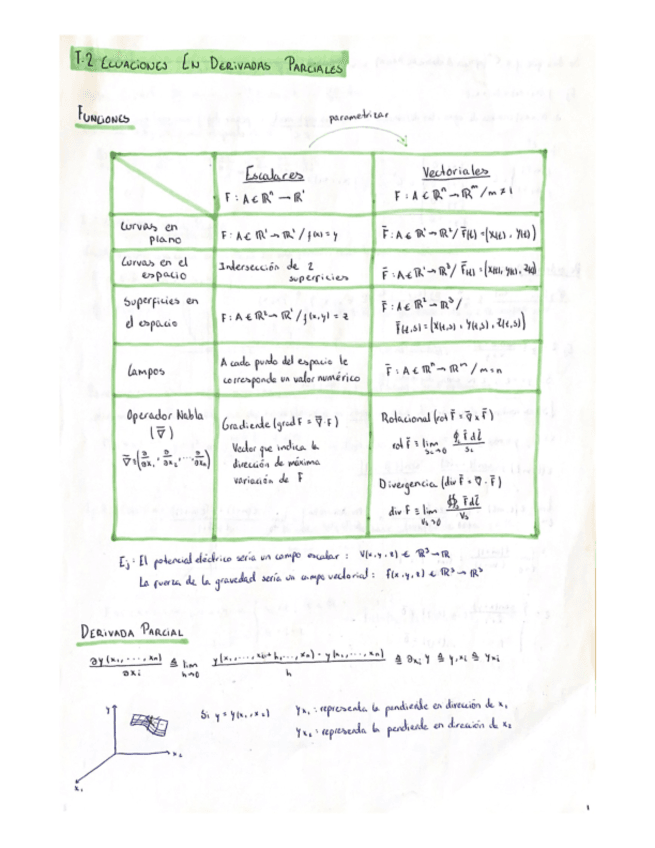 T.2 ECUACIONES EN DERIVADAS PARCIALES
FUNCIONES
parametrizar
Escalares
F : A ∈ ℝⁿ → ℝ¹
Vectoriales
F : A ∈ ℝⁿ → ℝᵐ / m ≠ 1
Curvas en
plano
F : A ∈ ℝ¹ → ℝ¹ / f(x) = y
F̄ : A ∈ ℝ¹ → ℝ² / F̄(t) = (x(t), y(t))
Curvas en el
espacio
Intersección de 2
superficies
F̄ : A ∈ ℝ¹ → ℝ³ / F̄(t) = (x(t), y(t), z(t))
Superficies en
el espacio
F : A ∈ ℝ² → ℝ¹ / f(x,y) = z
F̄ : A ∈ ℝ² → ℝ³ /
F̄(t,s) = (x(t,s), y(t,s), z(t,s))
Campos
A cada punto del espacio le
corresponde un valor numérico
F̄ : A ∈ ℝⁿ → ℝᵐ / m = n
Operador Nabla
(∇̄)
∇̄ = (∂/∂x₁, ∂/∂x₂, ..., ∂/∂xₙ)
Gradiente (grad F = ∇̄·F)
Vector que indica la
dirección de máxima
variación de F
Rotacional (rot F̄ = ∇̄ x F̄)
rot F̄ = lim
Divergencia (div F̄ = ∇̄ · F̄)
div F ≡ lim
Ej: El potencial eléctrico sería un campo escalar : V(x,y,z) ∈ ℝ³ → ℝ
La fuerza de la gravedad sería un campo vectorial : f(x,y,z) ∈ ℝ³ → ℝ³
DERIVADA PARCIAL
∂y(x₁, ..., xₙ)/∂xᵢ ≜ lim h→0 y(x₁, ..., xᵢ+h, ..., xₙ) - y(x₁, ..., xₙ)/h ≜ ∂xᵢ y ≜ y,xᵢ ≜ yxᵢ
y
x₂
x₁
Si y = y(x₁, x₂)
yx₁ : representa la pendiente en dirección de x₁
yx₂ : representa la pendiente en dirección de x₂
1